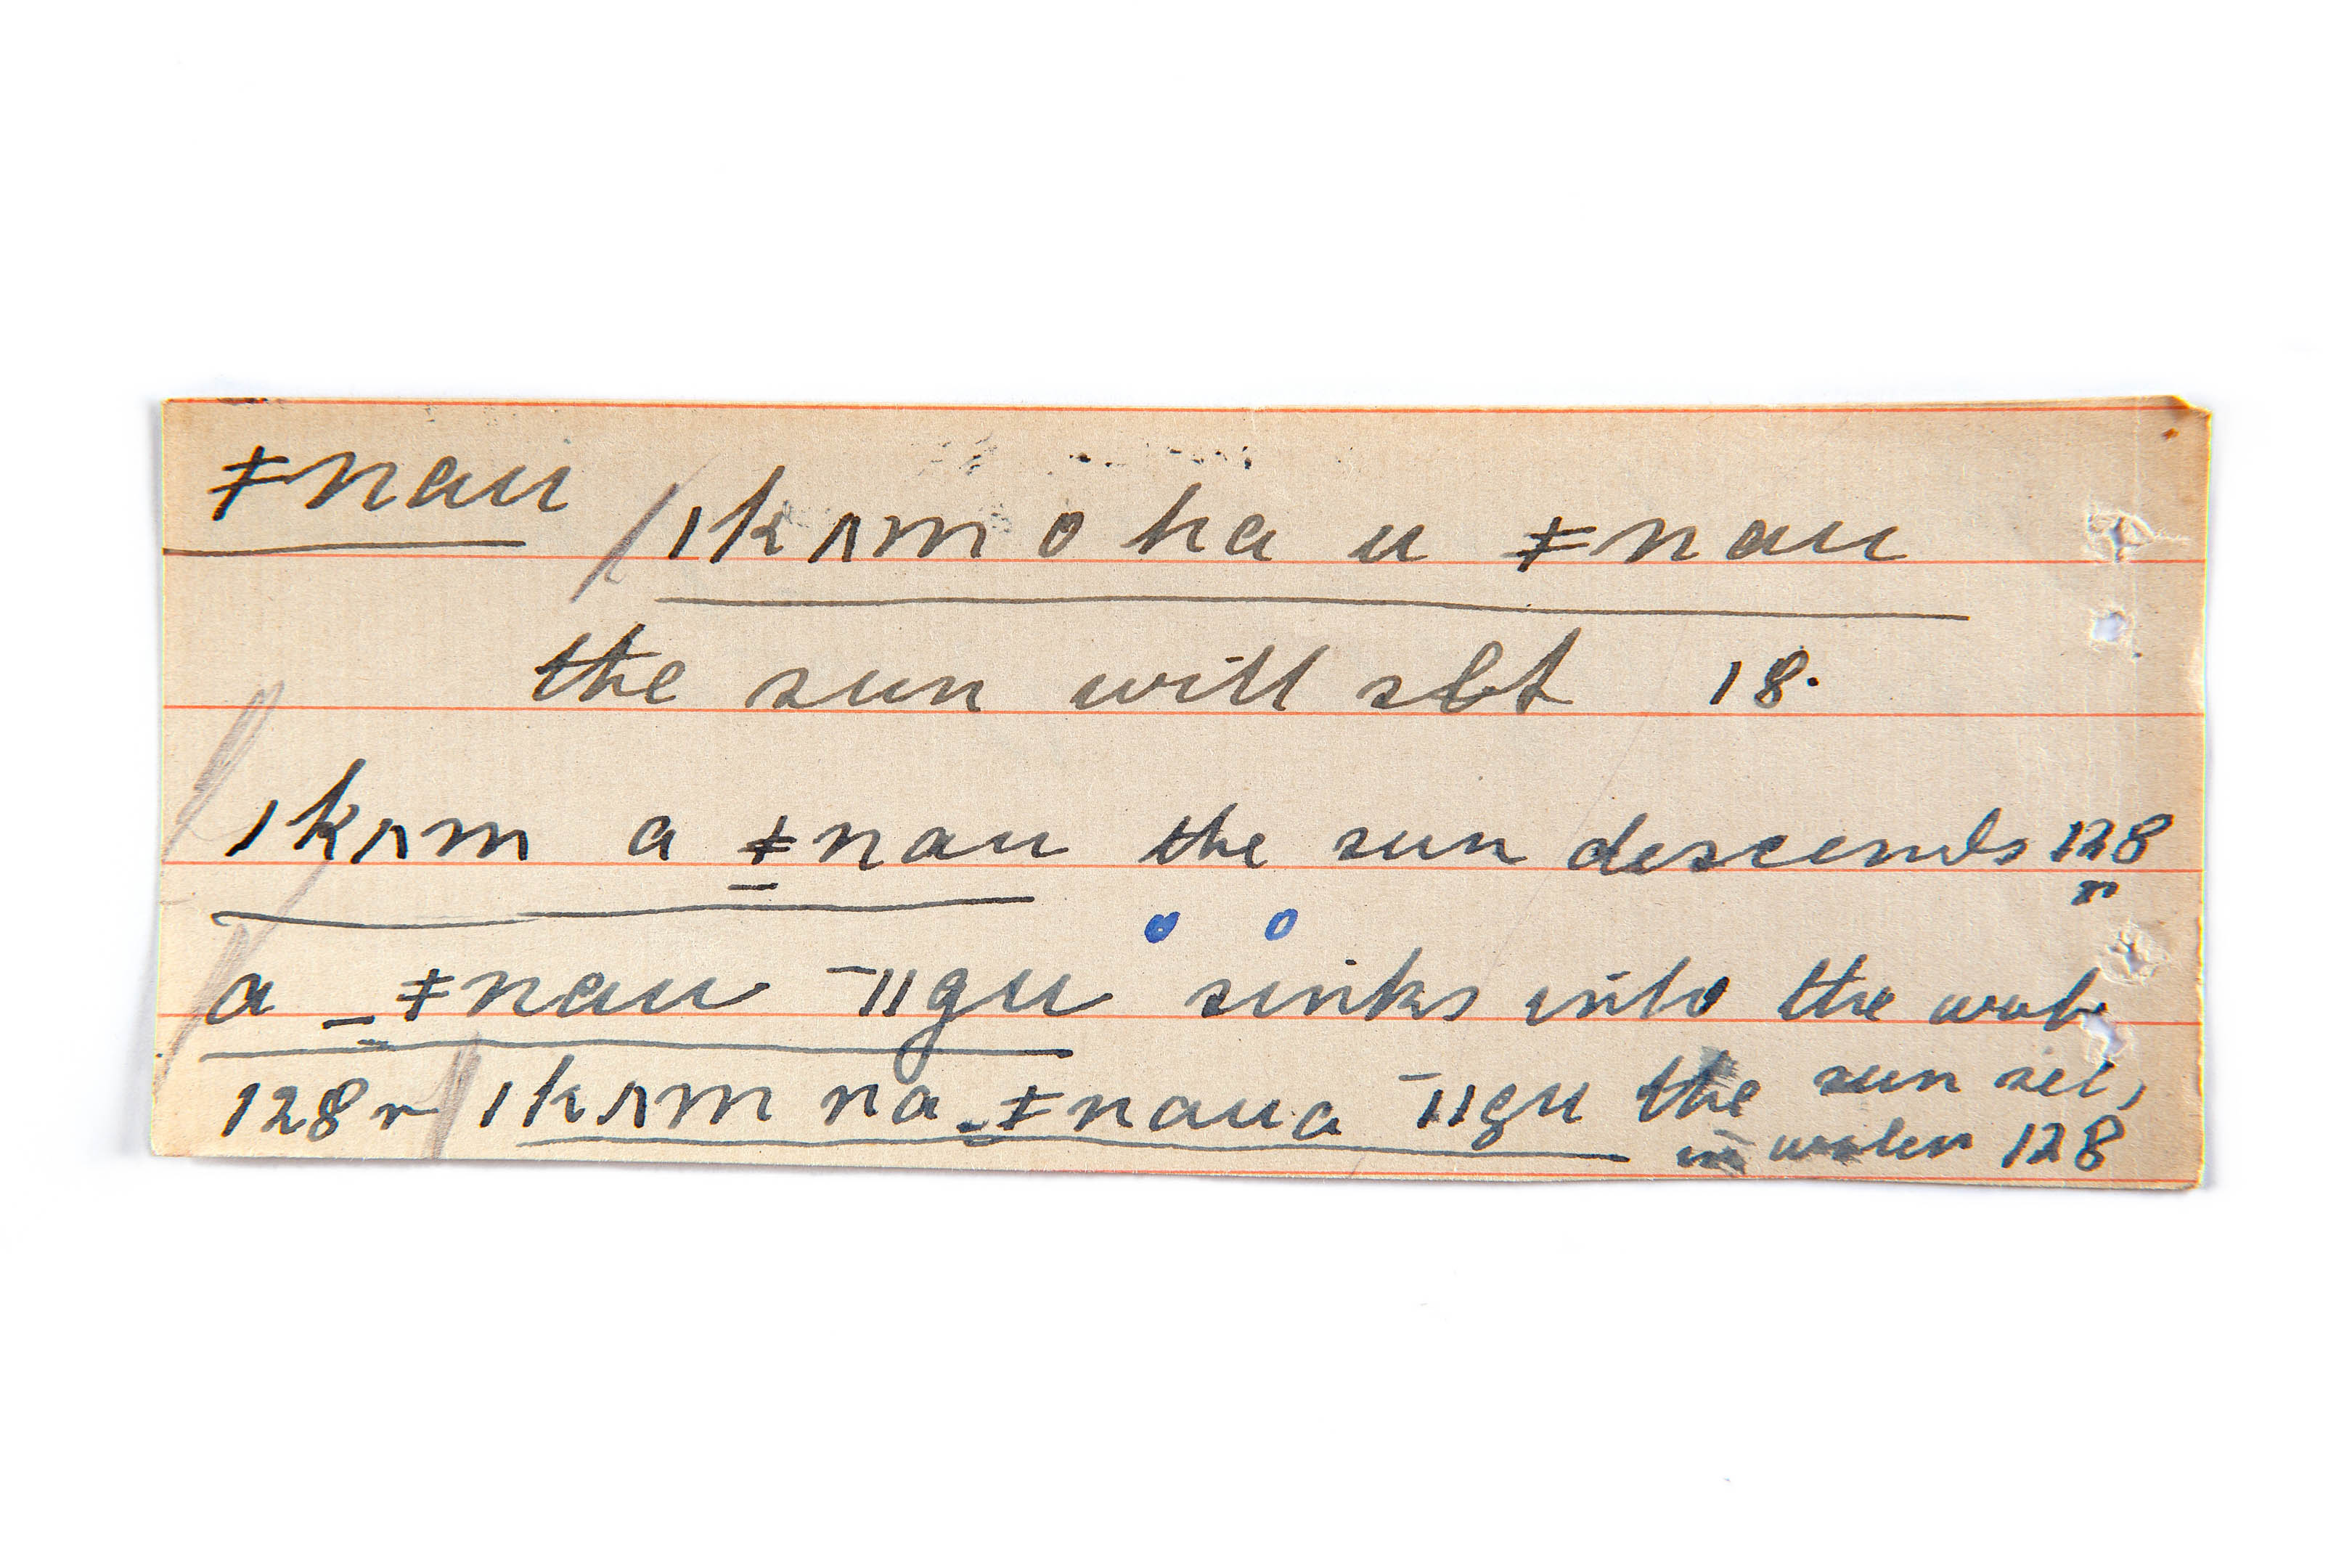 ǂnau
/ ǀkʌm o ha u ǂnau
the sun will set 18.
ǀkʌm a ǂnau the sun descends 128
r
a _ ǂnau ¯ǁgu sinks into the wat
128 r / ǀkʌm na _ǂnaua ¯ǁgu the sun set,
in water 128